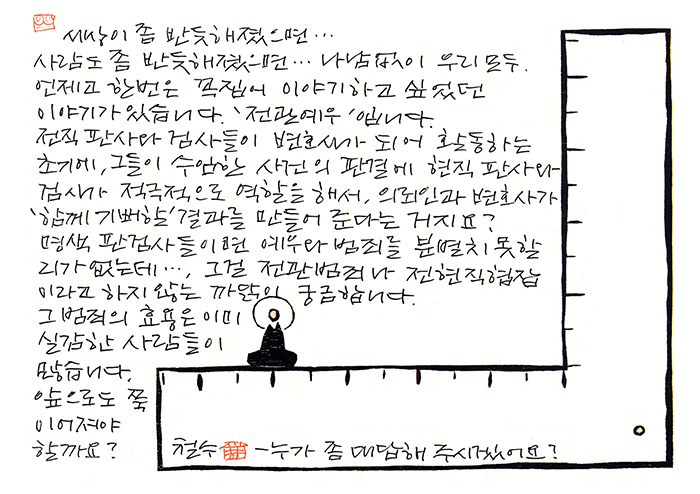 세상이 좀 반듯해졌으면…
사람도 좀 반듯해졌으면… 나남없이 우리 모두.
언제고 한번은 꼭집어 이야기하고 싶었던
이야기가 있습니다. '전관예우'입니다.
전직 판사와 검사들이 변호사가 되어 활동하는
초기에, 그들이 수임한 사건의 판결에 현직 판사와
검사가 적극적으로 역할을 해서, 의뢰인과 변호사가
'함께 기뻐할' 결과를 만들어 준다는 거지요?
명색 판검사들이면 예우와 범죄를 분별치 못할
리가 없는데…, 그걸 전관범죄나 전현직협잡
이라고 하지 않는 까닭이 궁금합니다.
그 범죄의 효용은 이미
실감한 사람들이
많습니다.
앞으로도 쭉
이어져야
할까요?
철수 - 누가 좀 대답해 주시겠어요?